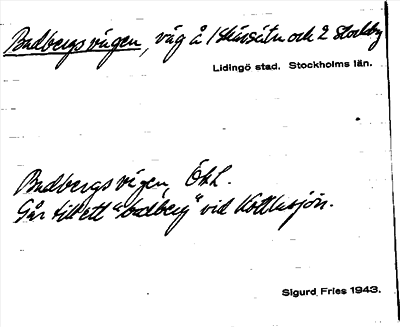 Badbergsvägen, väg å 1 Skärsätra och 2 Stockby
Lidingö stad. Stockholms län.
Badbergsvägen, Ökl.
Går till ett "badberg" vid Kottlasjön.
Sigurd Fries 1943.